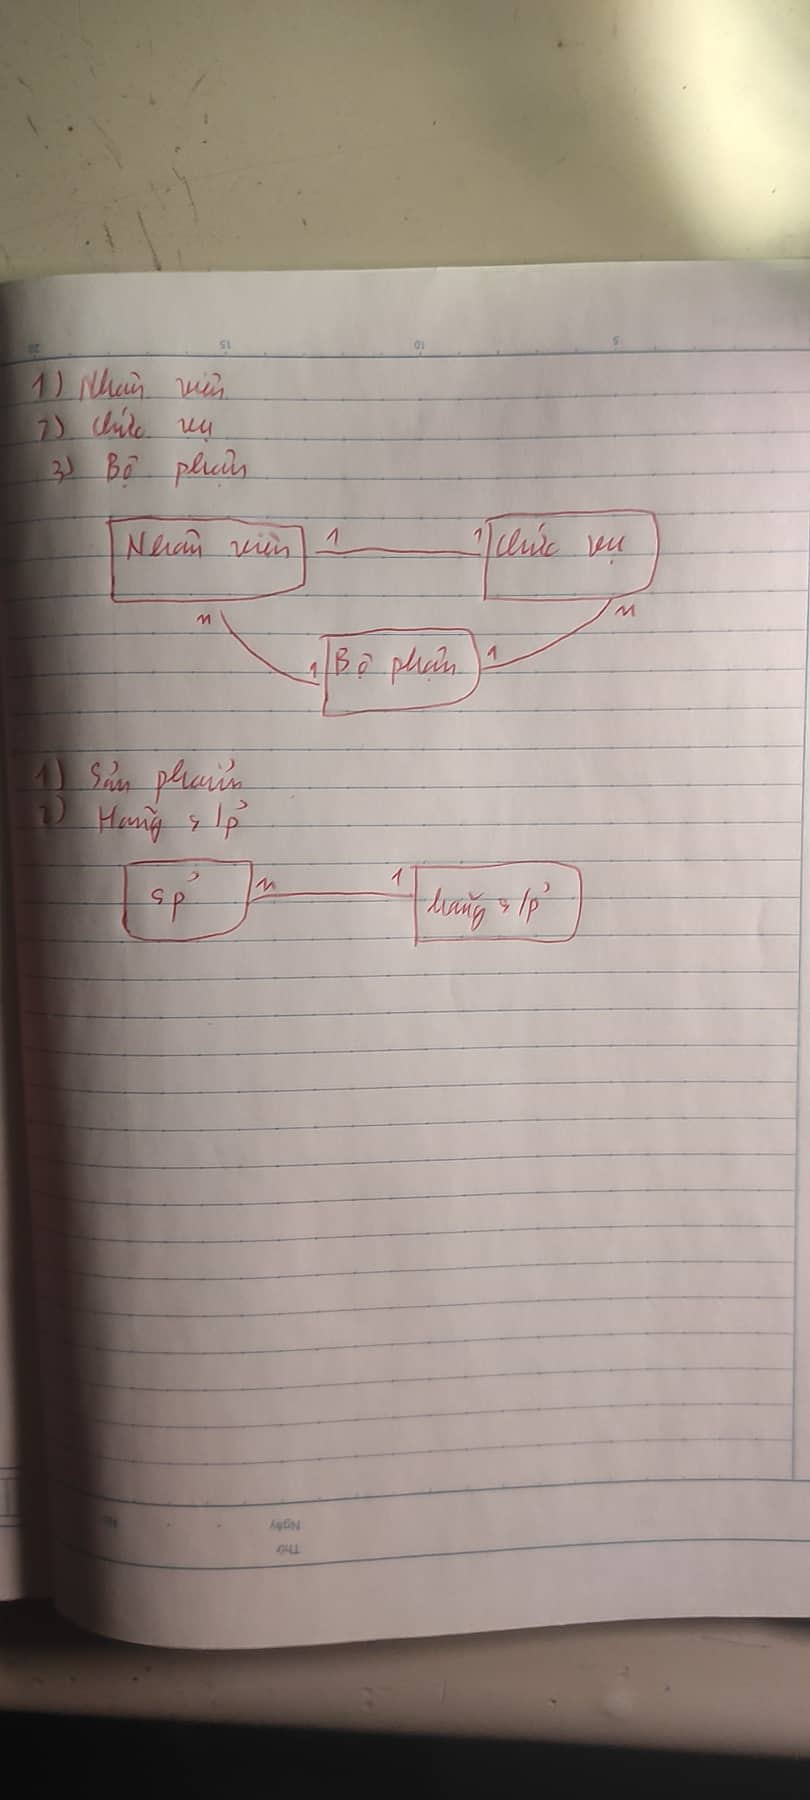 20 15 10 5
1) Nhân viên
2) Chức vụ
3) Bộ phận
Nhân viên 1 1 Chức vụ
n n
1 Bộ phận 1
1) Sản phẩm
2) Hãng s/p'
sp' n 1 hãng s/p'
Ngày
Thứ